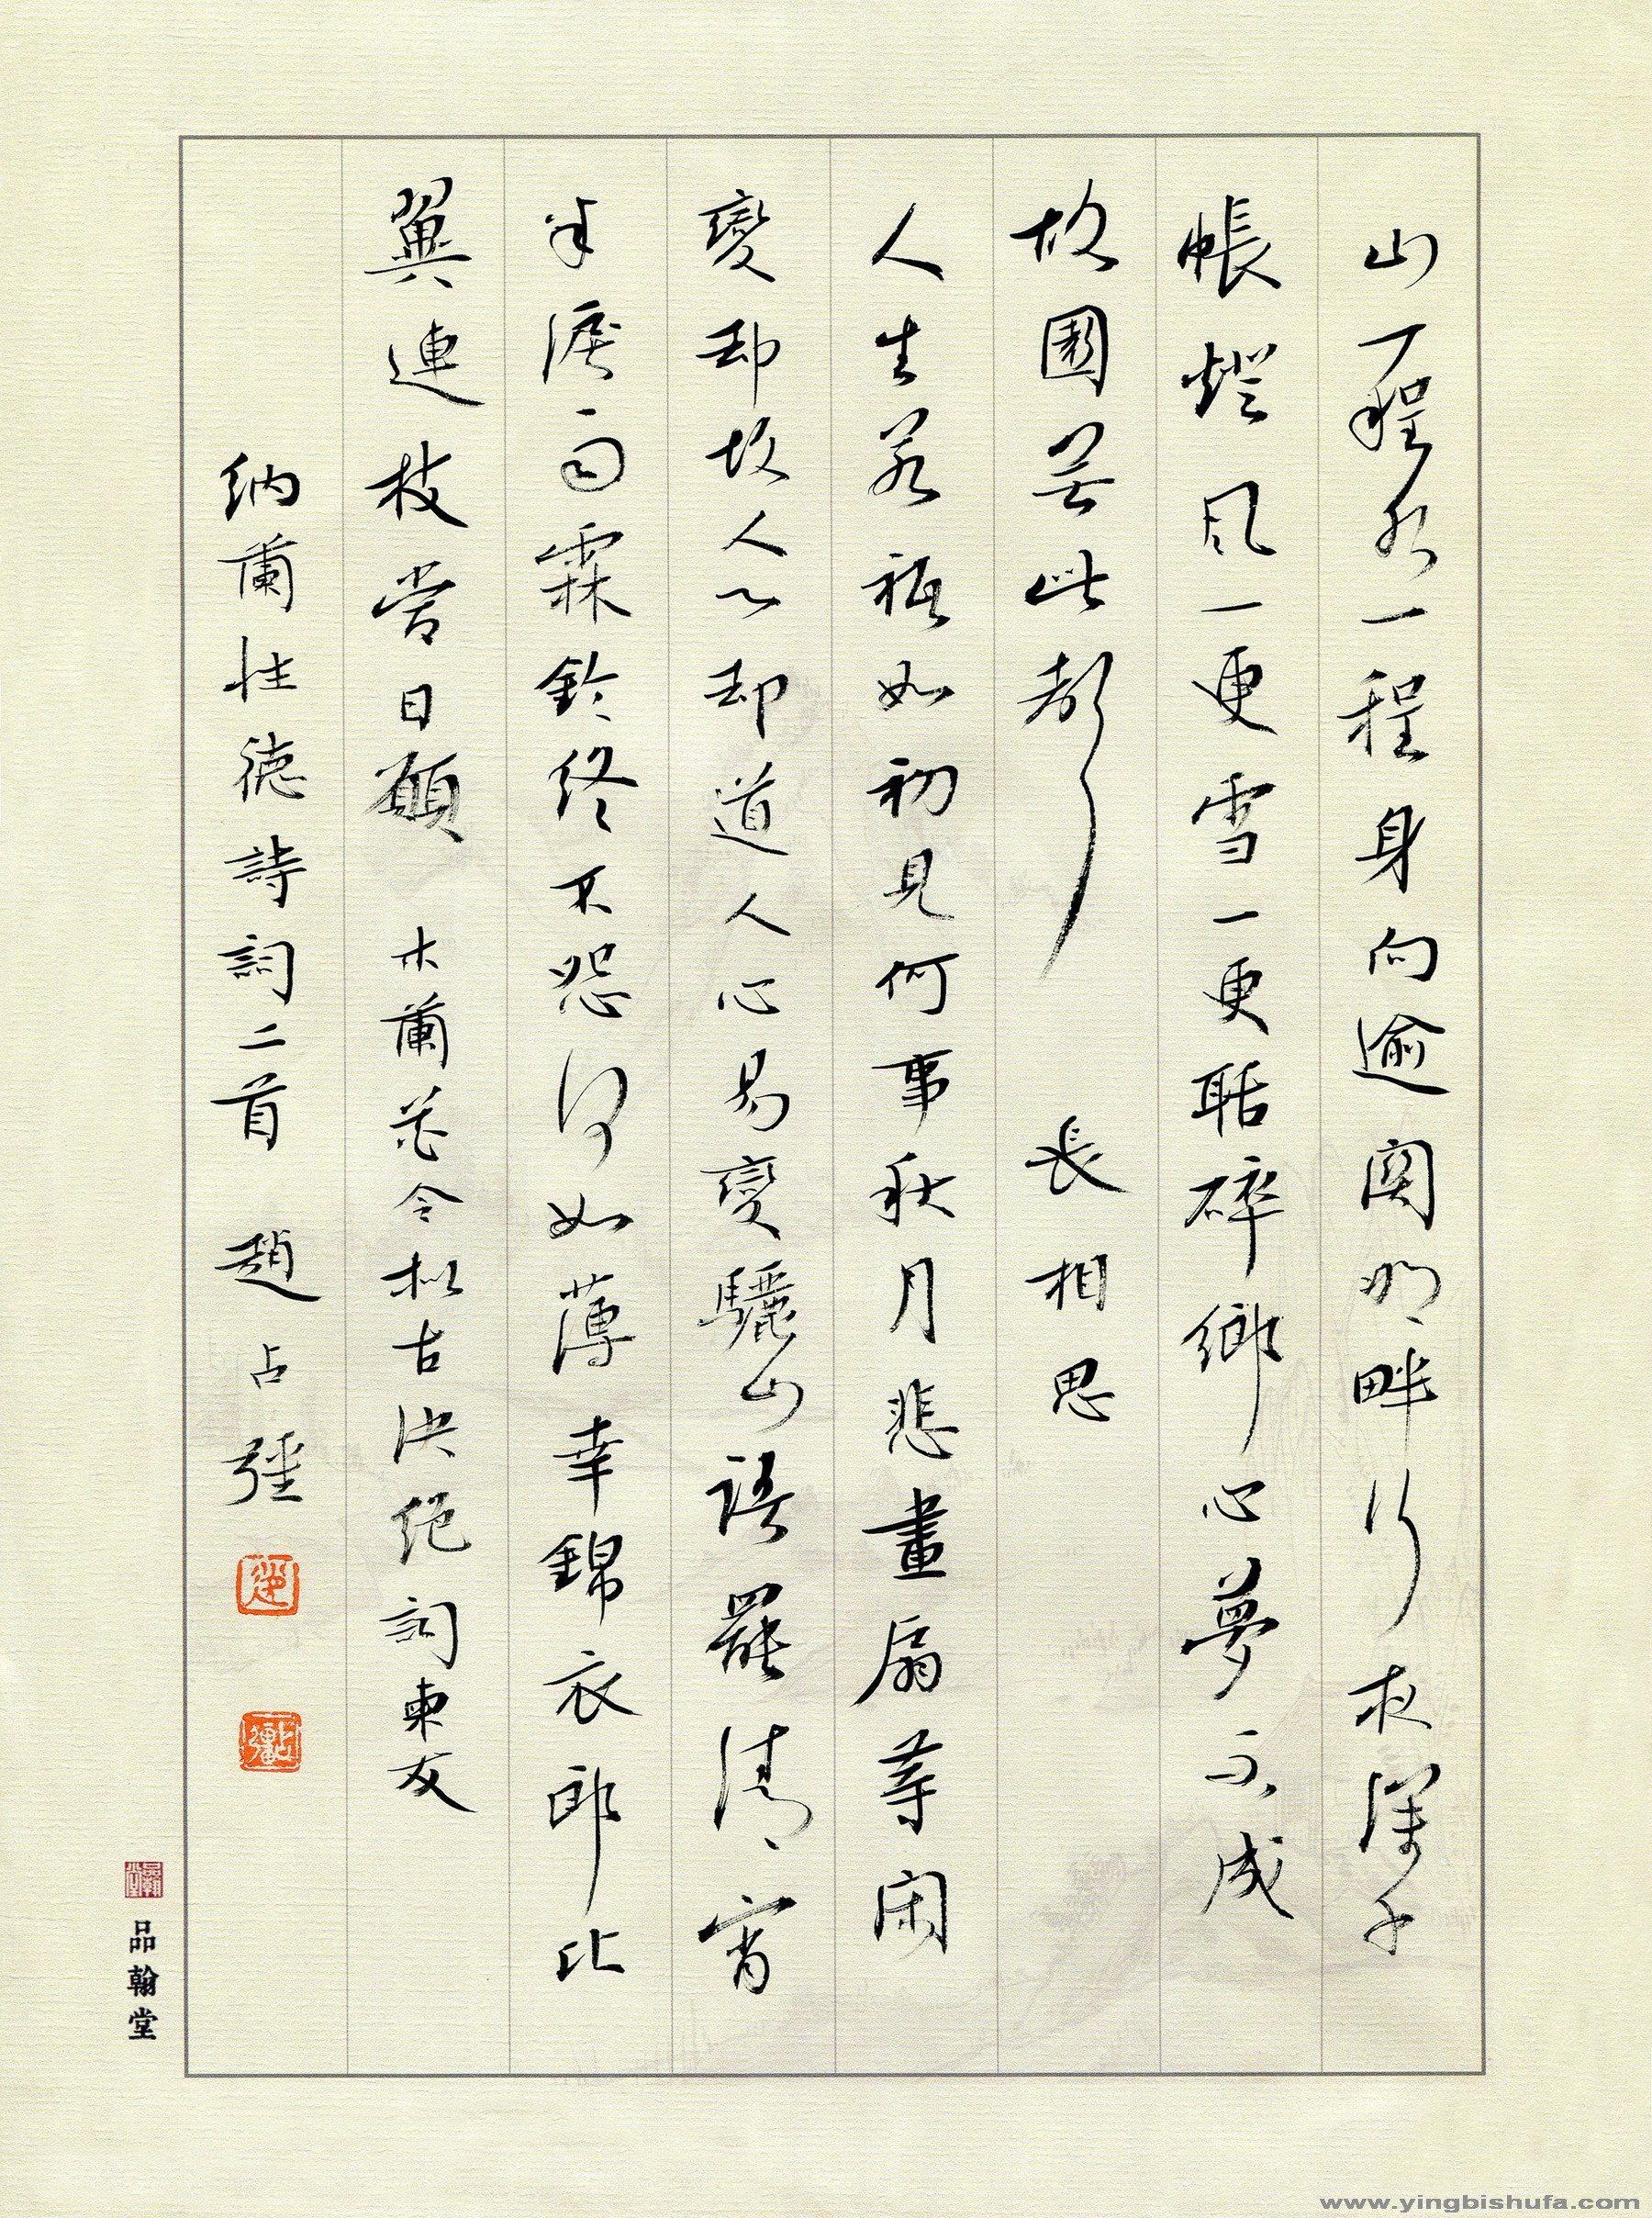 山一程水一程身向逾關那畔行夜深千
帳燈風一更雪一更聒碎鄉心夢不成
故園無此聲 長相思
人生若祗如初見何事秋月悲畫扇等閑
變却故人心却道人心易變驪山語罷清宵
半淚雨霖鈴終不怨何如薄幸錦衣郎比
翼連枝當日願 木蘭花令擬古決絕詞柬友
納蘭性德詩詞二首 趙占強
品翰堂
www.yingbishufa.com